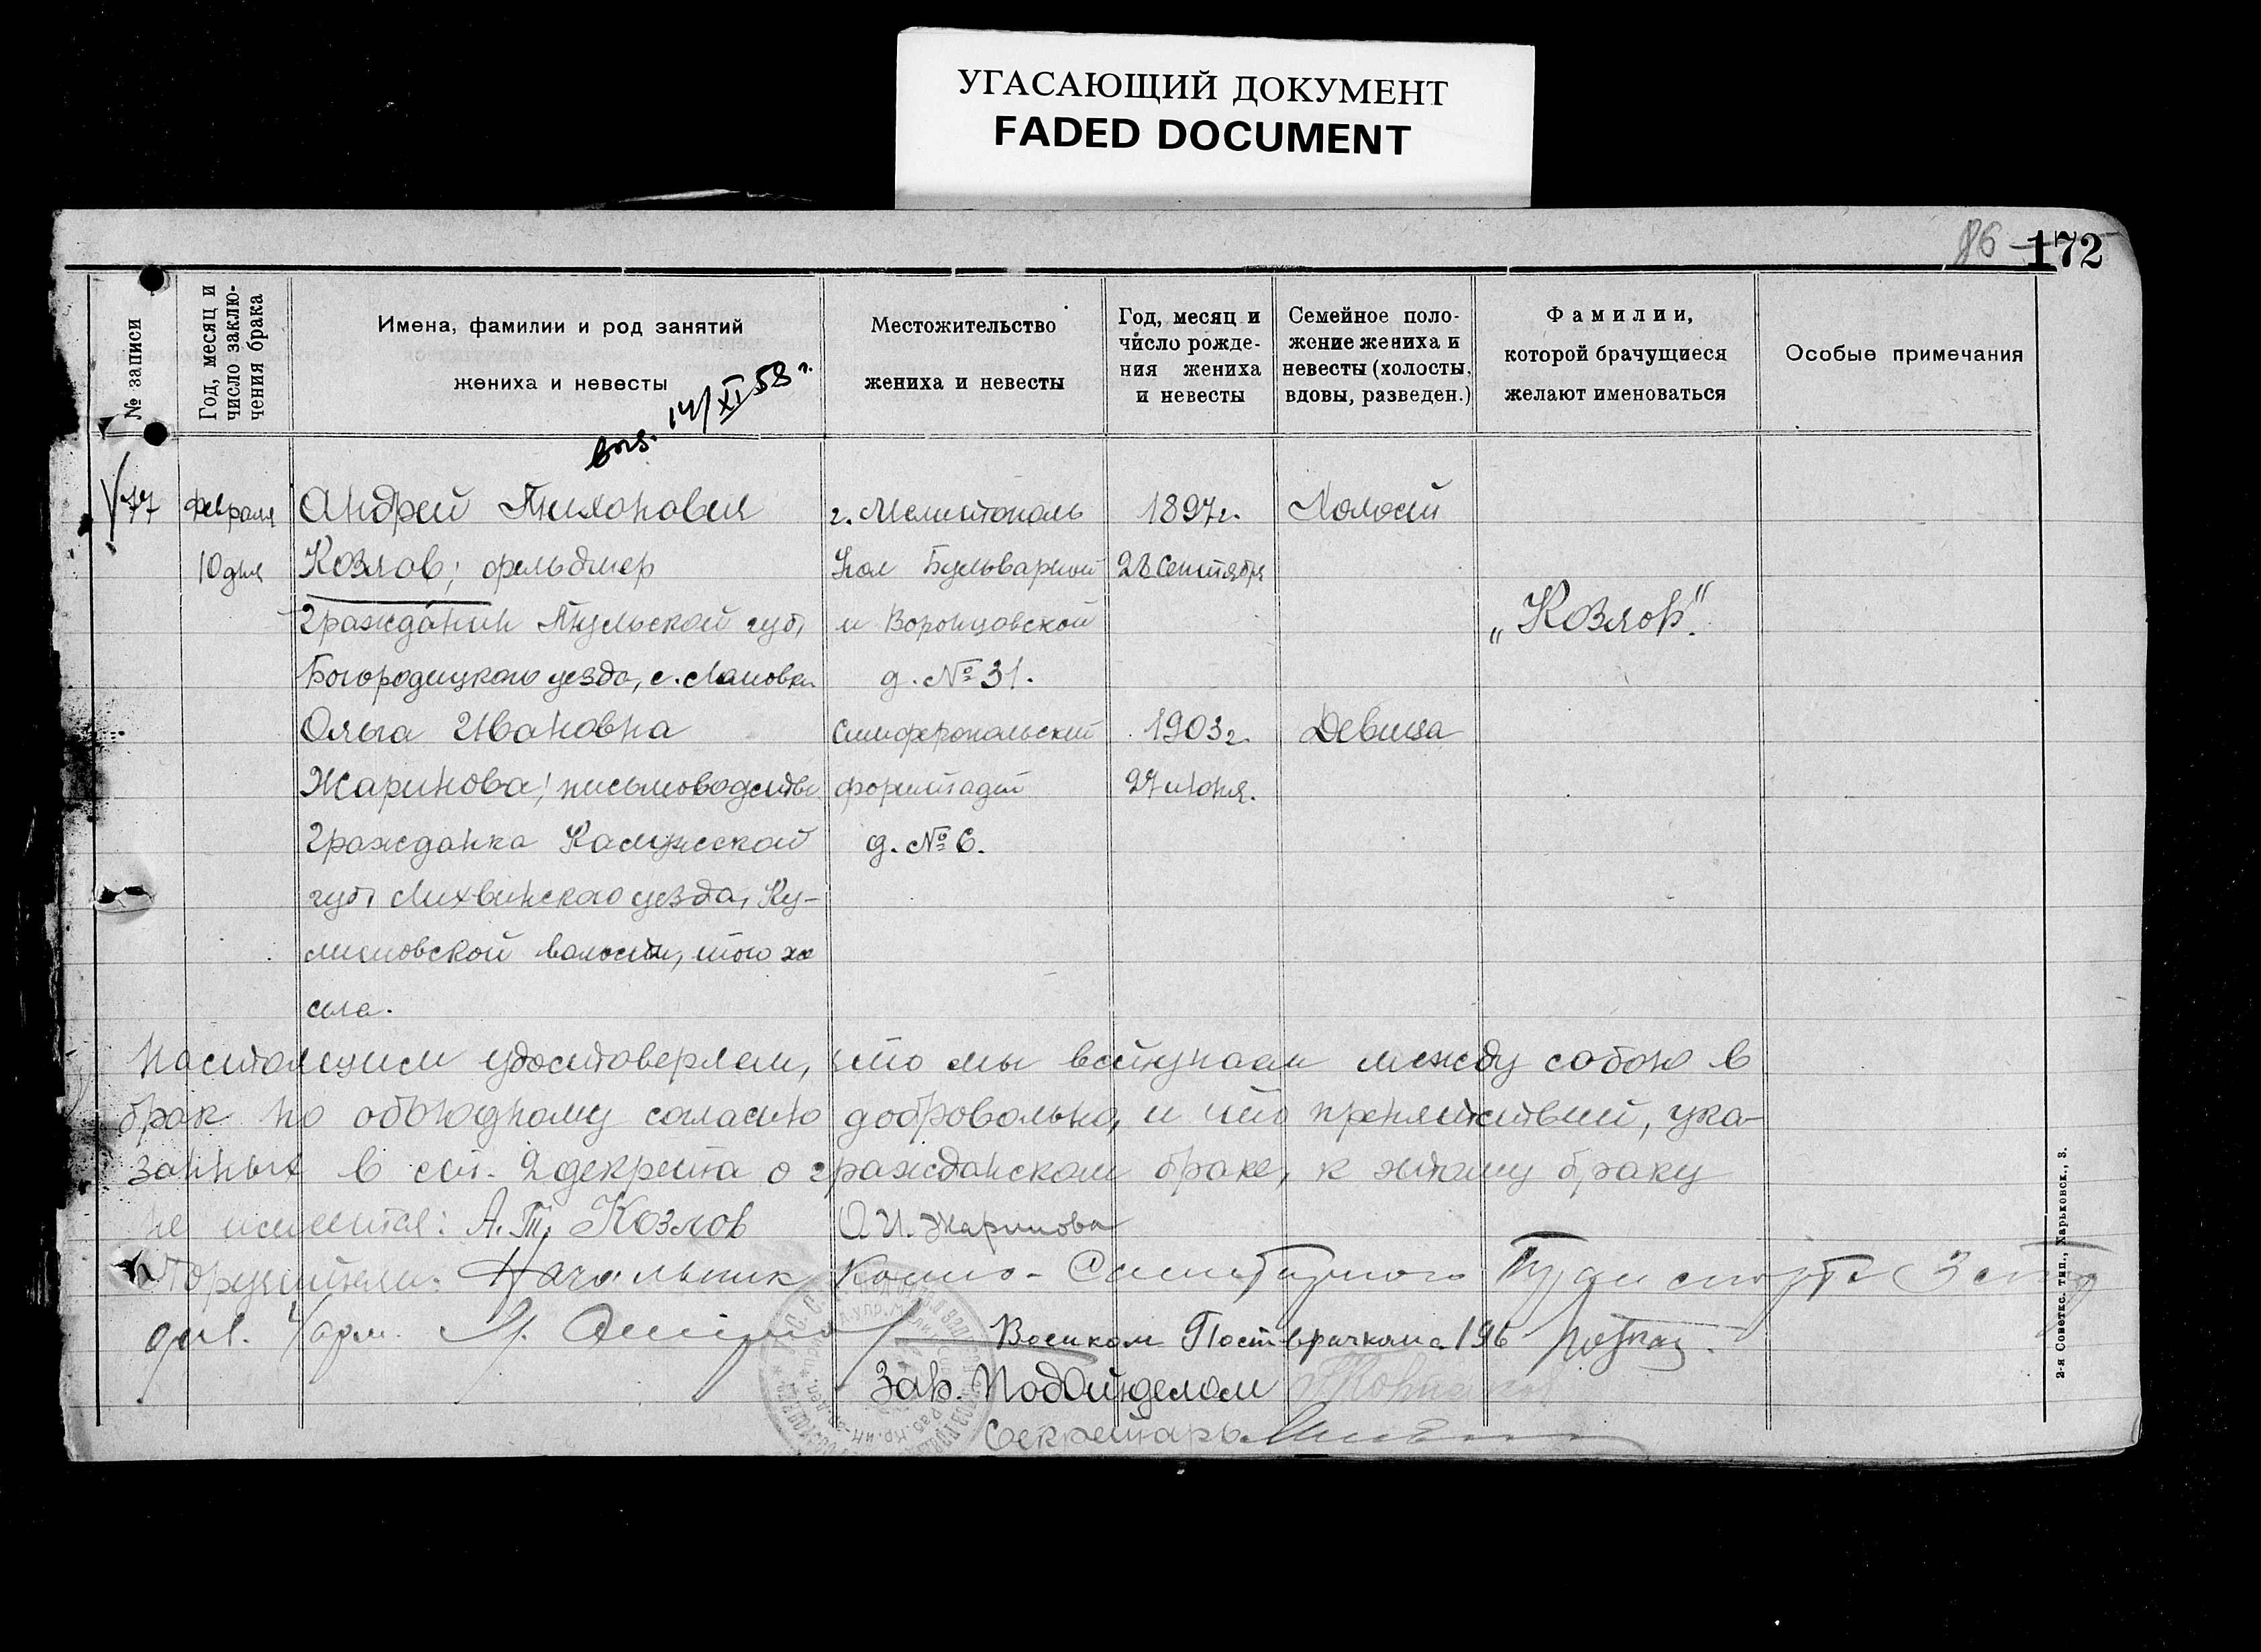 УГАСАЮЩИЙ ДОКУМЕНТ
FADED DOCUMENT
86 172
№ записи
Год, месяц и число заклю-чения брака
Имена, фамилии и род занятий
жениха и невесты
Местожительство
жениха и невесты
Год, месяц и
число рожде-
ния жениха
и невесты
Семейное поло-
жение жениха и
невесты (холосты,
вдовы, разведен.)
Фамилии,
которой брачущиеся
желают именоваться
Особые примечания
14/XI 58 г.
77 Февраля Андрей Тихонович г. Мелитополь 1897 г. Холост
10 дня Козлов; фельдшер Угол Бульварной 28 Сентября
Гражданин Тульской губ, и Воронцовской „Козлов".
Богородицкого уезда, с. д. № 31.
Ольга Ивановна Симферопольский 1903 г. Девица
Жаринова; форштадт 27 июня.
Гражданка Калужской д. № 6.
губ, Лихвинского уезда, Ку-
лешовской волости, того же
села.
Настоящим удостоверяем, что мы вступаем между собою в
брак по обоюдному согласию добровольно, и что препятствий, ука-
занных в ст. 2 декрета о гражданском браке, к этому браку
не имеется: А. Т. Козлов О. И. Жаринова
Поручители: Начальник Конно-Санитарного Транспорта
4 арм. Военком 196
Зав. Подотделом
Секретарь
2-я Советск. тип., Харьковск., 3.